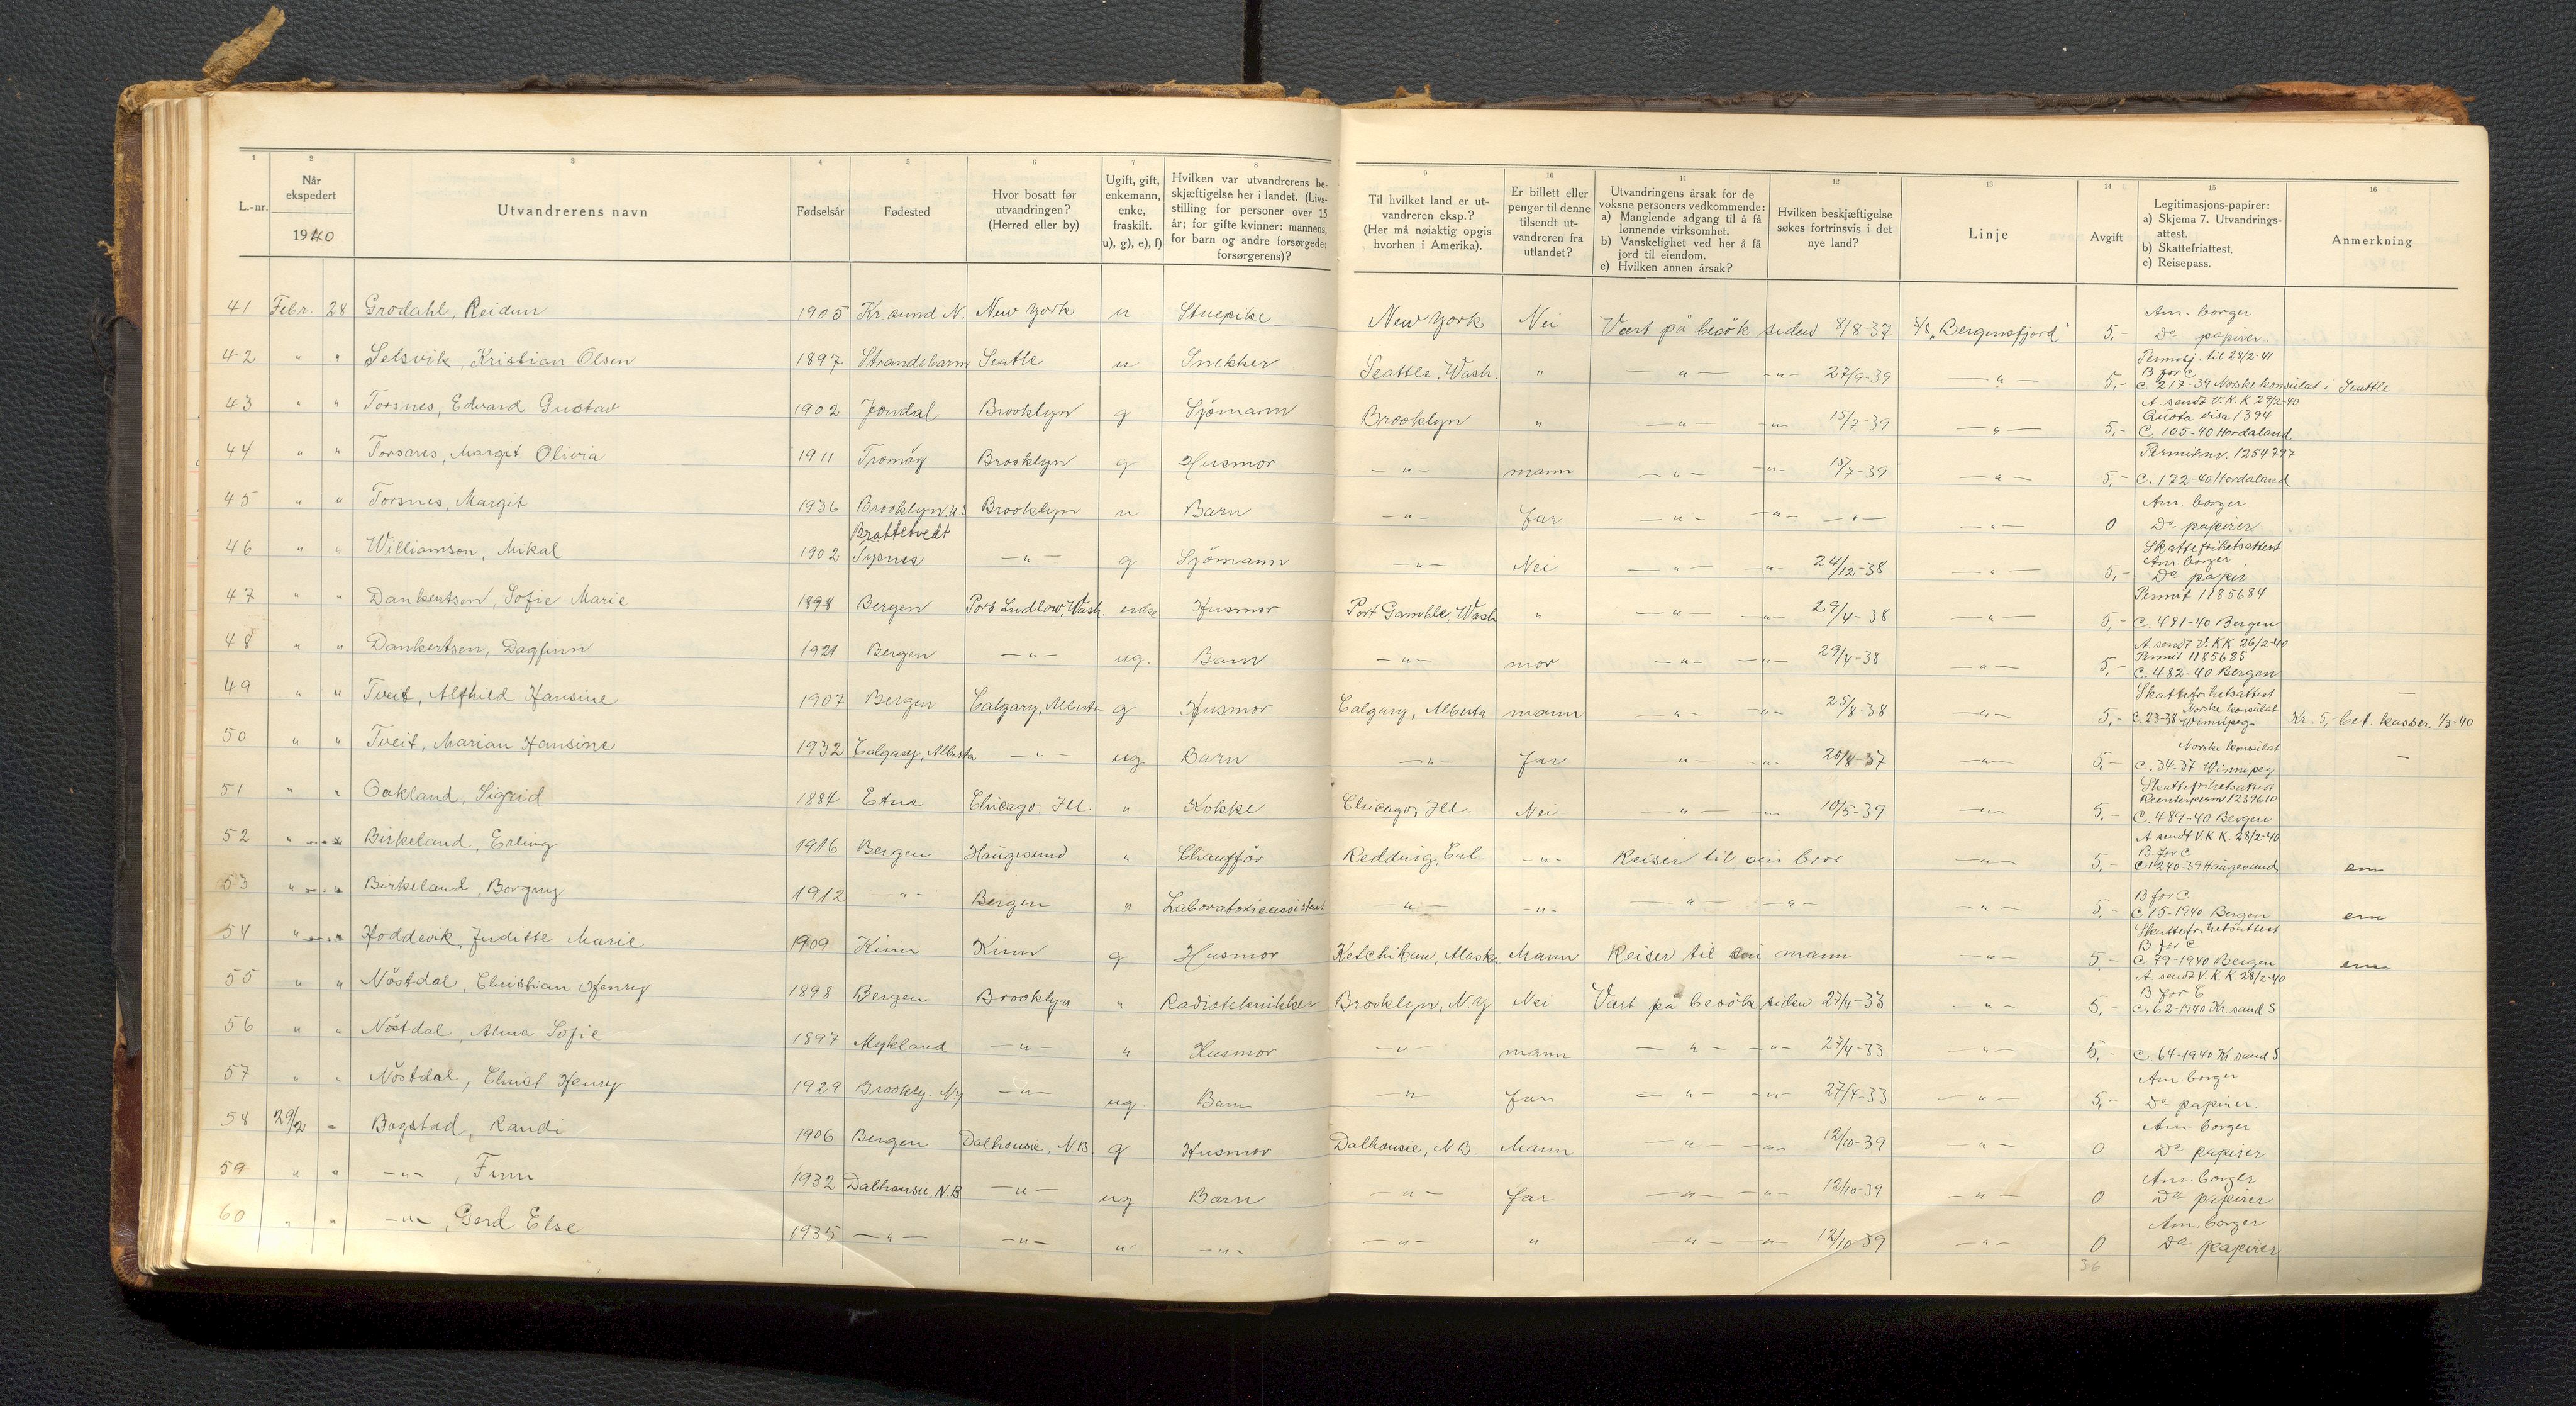 1 2 3 4 5 6 7 8 9 10 11 12 13 14 15 16
L.-nr. | Når ekspedert 1940 | Utvandrerens navn | Fødselsår | Fødested | Hvor bosatt før utvandringen? (Herred eller by) | Ugift, gift, enkemann, enke, fraskilt. u), g), e), f) | Hvilken var utvandrerens beskjæftigelse her i landet. (Livsstilling for personer over 15 år; for gifte kvinner: mannens, for barn og andre forsørgede: forsørgerens)? | Til hvilket land er utvandreren eksp.? (Her må nøiaktig opgis hvorhen i Amerika). | Er billett eller penger til denne tilsendt utvandreren fra utlandet? | Utvandringens årsak for de voksne personers vedkommende: a) Manglende adgang til å få lønnende virksomhet. b) Vanskelighet ved her å få jord til eiendom. c) Hvilken annen årsak? | Hvilken beskjæftigelse søkes fortrinsvis i det nye land? | Linje | Avgift | Legitimasjons-papirer: a) Skjema 7. Utvandringsattest. b) Skattefriattest. c) Reisepass. | Anmerkning
41 Febr. 28 Grodahl, Reidun 1905 Kr. sund N. New York u Stuepike New York Nei Vært på besök siden 8/8-37 S/S „Bergensfjord" 5,- Am. borger Do papirer
42 " " Selsvik, Kristian Olsen 1897 Strandebarm Seatle u Snekker Seattle, Wash. " -"- -"- 27/9-39 -"- 5,- Permisj. til 28/2-41 B for C C. 217-39 Norske konsulat i Seattle
43 " " Torsnes, Edvard Gustav 1902 Jondal Brooklyn g Sjömann Brooklyn " -"- -"- 15/7-39 -"- 5,- A. sendt V. K. K 29/2-40 Quota visa 1394 C. 105-40 Hordaland
44 " " Torsnes, Margit Olivia 1911 Tromöy Brooklyn g Husmor -"- mann -"- -"- 15/7-39 -"- 5,- Permit nr. 1254797 C. 172-40 Hordaland
45 " " Torsnes, Marget 1936 Brooklyn U.S. Brooklyn u Barn -"- far -"- -"- -"- -"- 0 Am. borger Do papirer
46 " " Williamson, Mikal 1902 Brattetvedt Sypnes -"- g Sjömann -"- Nei -"- -"- 24/12-38 -"- 5,- Skattefrihetsattest Am. borger Do papir
47 " " Dankertsen, Sofie Marie 1898 Bergen Port Ludlow, Wash. enke Husmor Port Gamble, Wash " -"- -"- 29/4-38 -"- 5,- Permit 1185684 C. 481-40 Bergen
48 " " Dankertsen, Dagfinn 1921 Bergen -"- ug. Barn -"- mor -"- -"- 29/4-38 -"- 5,- A. sendt V. KK 26/2-40 Permit 1185685 C. 482-40 Bergen
49 " " Tveit, Alfhild Hansine 1907 Bergen Calgary, Alberta g Husmor Calgary, Alberta mann -"- -"- 25/8-38 -"- 5,- Skattefrihetsattest Norske konsulat C. 23-38 Winnipeg Kr. 5,- bet. kasser. 1/3-40
50 " " Tveit, Marian Hansine 1932 Calgary, Alberta -"- ug Barn -"- far -"- -"- 20/8-37 -"- 5,- Norske konsulat C. 34-37 Winnipeg
51 " " Oakland, Sigrid 1884 Etne Chicago. Ill. " Kokke Chicago, Ill. Nei -"- -"- 10/5-39 -"- 5,- Skattefrihetsattest Reenterperm 1239610 C. 489-40 Bergen
52 " " Birkeland, Erling 1916 Bergen Haugesund " Chaufför Redding, Cal. -"- Reiser til sin bror -"- 5,- A sendt V. K K. 28/2-40 B for C C 1240-39 Haugesund em
53 " " Birkeland, Borgny 1912 -"- Bergen " Laboratorieassistent -"- -"- -"- -"- -"- 5,- B for C C 15-1940 Bergen em
54 " " Hoddevik, Juditte Marie 1909 Kinn Kinn g Husmor Ketchikan, Alaska Mann Reiser til sin mann -"- 5,- Skattefrihetsattest B for C C 79-1940 Bergen em
55 " " Nöstdal, Christian Henry 1898 Bergen Brooklyn " Radiotekniker Brooklyn, N.Y Nei Vært på besök siden 27/4-33 -"- 5,- A. sendt V. K. K. 28/2-40 B for C C. 62-1940 Kr. sand S
56 " " Nöstdal, Alma Sofie 1897 Mykland -"- " Husmor -"- mann -"- -"- 27/4-33 -"- 5,- C. 64-1940 Kr sand S
57 " " Nöstdal, Christ Henry 1929 Brookly. Ny -"- ug. Barn -"- far -"- -"- 27/4-33 -"- 5,- Am. borger Do papirer.
58 29/2 " Bogstad, Randi 1906 Bergen Dalhousie, N.B. g Husmor Dalhousie, N.B. Mann -"- -"- 12/10-39 -"- 0 Am. borger Do papirer
59 " " -"- , Finn 1932 Dalhousie, N.B -"- ug Barn -"- far -"- -"- 12/10-39 -"- 0 Am. borger Do papirer
60 " " -"- , Gerd Else 1935 -"- -"- " -"- -"- " -"- -"- 12/10-39 -"- 0 Am. borger Do papirer
36